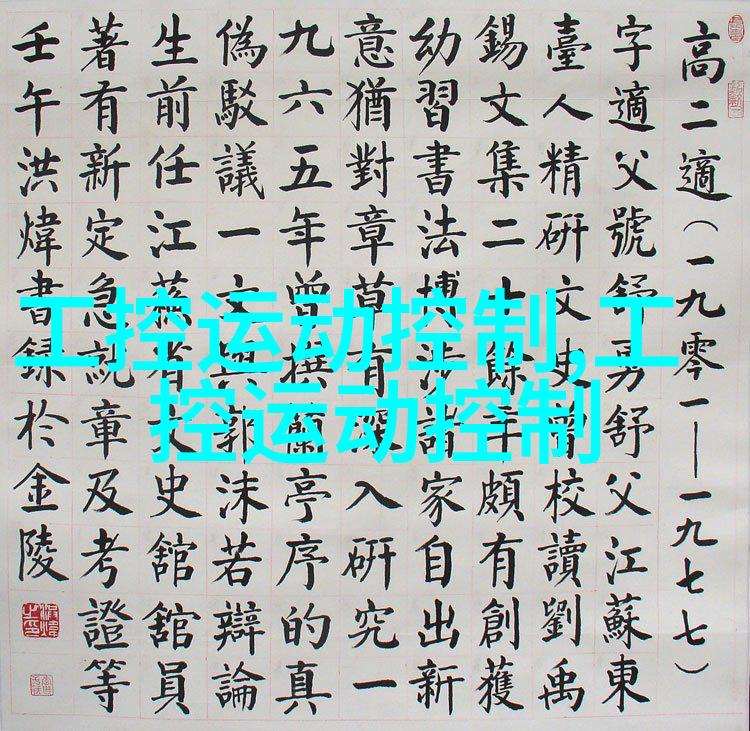 高二適（一九零一—一九七七）
字適父號舒勇舒父江蘇東
臺人精研文史曾校讀劉禹
錫文集二十餘年頗有創獲
幼習書法博涉諸家自出新
意猶對章草有深入研究一
九六五年曾撰蘭亭序的真
偽駁議一文與郭沫若辯論
生前任江蘇省文史舘舘員
著有新定急就章及考證等
壬午洪煒書録於金陵
工控运动控制,工
控运动控制